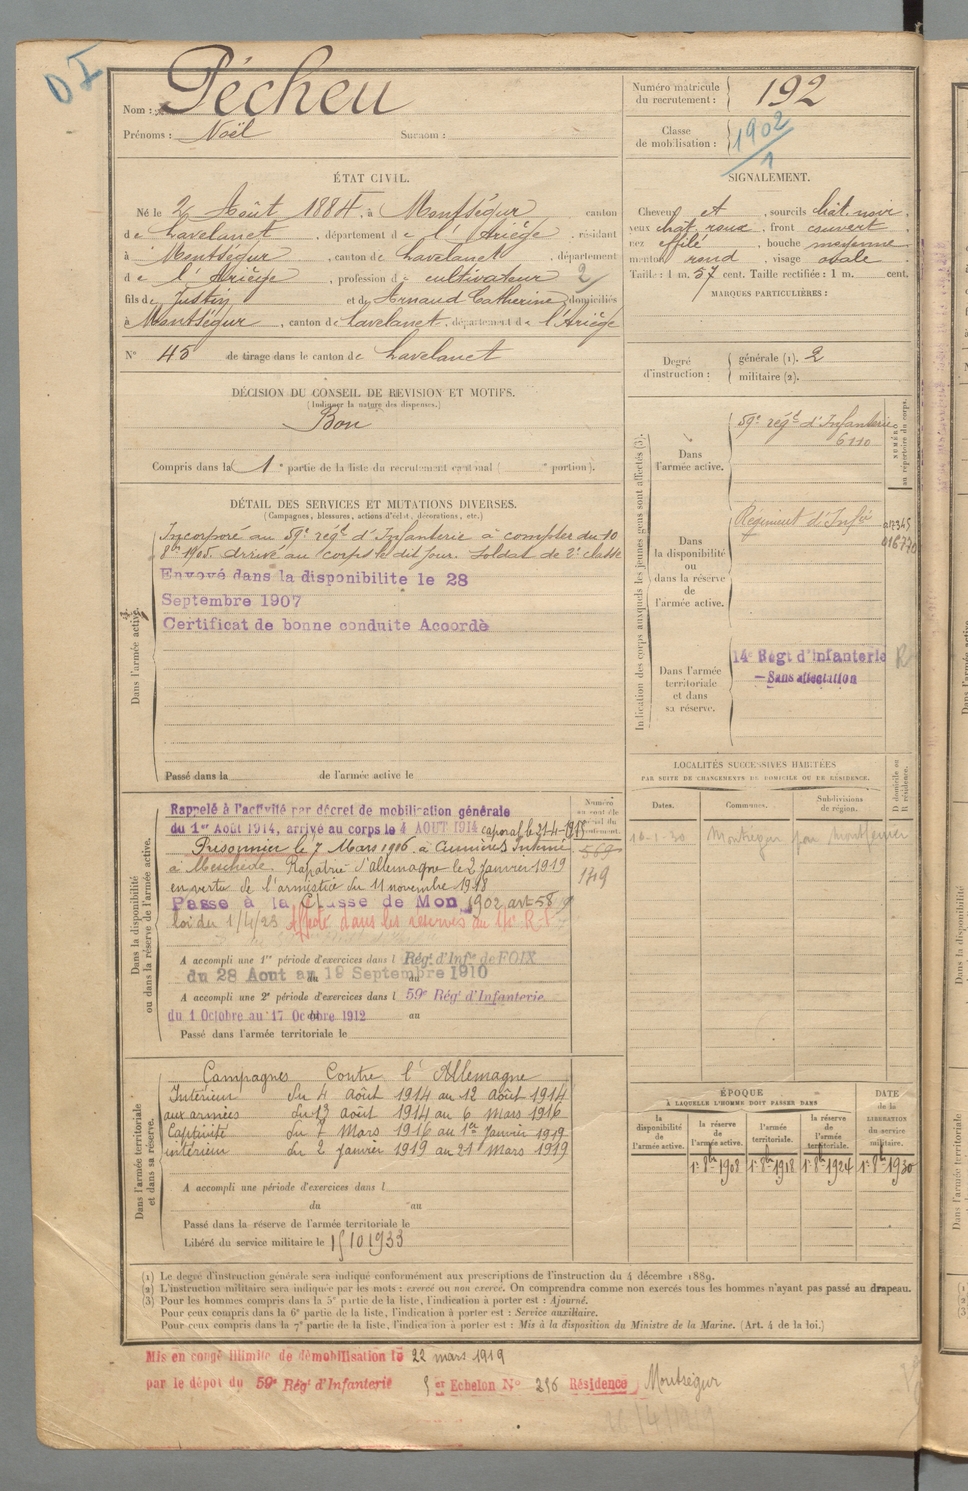 D I
Nom : Pécheu
Prénoms : Noël Surnom :
Numéro matricule du recrutement : 192
Classe de mobilisation : 1902/1
ÉTAT CIVIL.
Né le 2 Août 1884, à Montségur canton
de Lavelanet, département de l'Ariège, résidant
à Montségur, canton de Lavelanet, département
de l'Ariège, profession de cultivateur 2
fils de Justin et de Arnaud Catherine domiciliés
à Montségur, canton de Lavelanet, département de l'Ariège
N° 45 de tirage dans le canton de Lavelanet
SIGNALEMENT.
Cheveux et, sourcils chât. noir,
yeux chat. roux, front couvert
nez effilé, bouche moyenne
menton rond, visage ovale
Taille : 1 m. 57 cent. Taille rectifiée : 1 m. cent.
MARQUES PARTICULIÈRES :
Degré d'instruction : générale (1). 2
militaire (2).
DÉCISION DU CONSEIL DE REVISION ET MOTIFS.
(Indiquer la nature des dispenses.)
Bon
Compris dans la 1e partie de la liste du recrutement cantonal ( e portion).
DÉTAIL DES SERVICES ET MUTATIONS DIVERSES.
(Campagnes, blessures, actions d'éclat, décorations, etc.)
Dans l'armée active.
Incorporé au 59e régt d'Infanterie à compter du 10
8bre 1905. Arrivé au corps le dit jour. Soldat de 2e classe
Envoyé dans la disponibilite le 28
Septembre 1907
Certificat de bonne conduite Accordè
Passé dans la de l'armée active le
Indication des corps auxquels les jeunes gens sont affectés (3).
NUMÉRO au répertoire du corps.
Dans l'armée active.
59e régt d'Infanterie
6110
Dans la disponibilité ou dans la réserve de l'armée active.
Régiment d'Infie
016770
Dans l'armée territoriale et dans sa réserve.
14e Regt d'Infanterie
— Sans affectation
Dans la disponibilité ou dans la réserve de l'armée active.
Rappelé à l'activité par décret de mobilisation générale
du 1er Août 1914, arrivé au corps le 4 AOUT 1914 caporal le 21-4-1915
Prisonnier le 7 Mars 1916 à Cumières Interné
à Meschede. Rapatrié d'Allemagne le 2 Janvier 1919
en vertu de l'armistice du 11 novembre 1918
Passe à la Classe de Mon 1902 art 58
loi du 1/4/23 Affecté dans les réserves au 14e R.I.
569
1749
A accompli une 1re période d'exercices dans l Régt d'Infie de FOIX
du 28 Aout au 19 Septembre 1910
A accompli une 2e période d'exercices dans l 59e Régt d'Infanterie
du 1 Octobre au 17 Octobre 1912 au
Passé dans l'armée territoriale le
LOCALITÉS SUCCESSIVES HABITÉES
PAR SUITE DE CHANGEMENTS DE DOMICILE OU DE RÉSIDENCE.
D domicile ou R résidence.
Dates. Communes. Subdivisions de région.
16-1-30 Montségur par Montferrier
Dans l'armée territoriale et dans sa réserve.
Campagnes Contre l'Allemagne
Intérieur du 4 août 1914 au 12 août 1914
aux armées du 13 août 1914 au 6 Mars 1916
Captivité du 7 Mars 1916 au 1er Janvier 1919
intérieur du 2 janvier 1919 au 21 Mars 1919
A accompli une période d'exercices dans l
du au
Passé dans la réserve de l'armée territoriale le
Libéré du service militaire le 15 10 1933
ÉPOQUE
À LAQUELLE L'HOMME DOIT PASSER DANS
la disponibilité de l'armée active.
la réserve de l'armée active.
l'armée territoriale.
la réserve de l'armée territoriale.
DATE de la LIBÉRATION du service militaire.
1er 8bre 1908 1er 8bre 1918 1er 8bre 1924 1er 8bre 1930
(1) Le degré d'instruction générale sera indiqué conformément aux prescriptions de l'instruction du 4 décembre 1889.
(2) L'instruction militaire sera indiquée par les mots : exercé ou non exercé. On comprendra comme non exercés tous les hommes n'ayant pas passé au drapeau.
(3) Pour les hommes compris dans la 5e partie de la liste, l'indication à porter est : Ajourné.
Pour ceux compris dans la 6e partie de la liste, l'indication à porter est : Service auxiliaire.
Pour ceux compris dans la 7e partie de la liste, l'indication à porter est : Mis à la disposition du Ministre de la Marine. (Art. 4 de la loi.)
Mis en congé illimité de démobilisation le 22 mars 1919
par le dépot du 59e Rég. d'Infanterie Echelon N° 256 Résidence Montségur